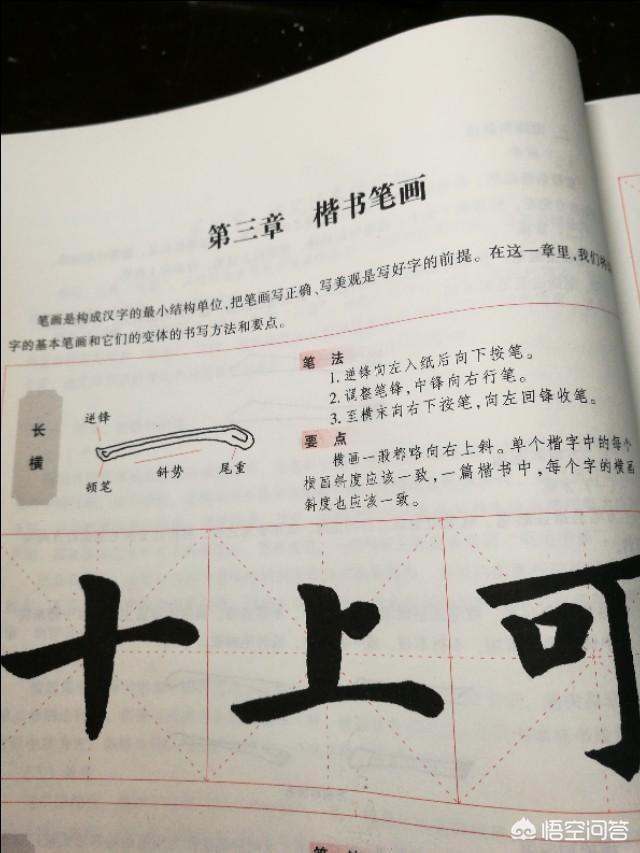 第三章 楷书笔画
笔画是构成汉字的最小结构单位,把笔画写正确、写美观是写好字的前提。在这一章里,我们将
字的基本笔画和它们的变体的书写方法和要点。
长横
逆锋
顿笔
斜势
尾重
笔 法
1. 逆锋向左入纸后向下按笔。
2. 调整笔锋,中锋向右行笔。
3. 至横末向右下按笔,向左回锋收笔。
要 点
横画一般都略向右上斜。单个楷字中的每个
横画斜度应该一致,一篇楷书中,每个字的横画
斜度也应该一致。
十 上 可
悟空问答